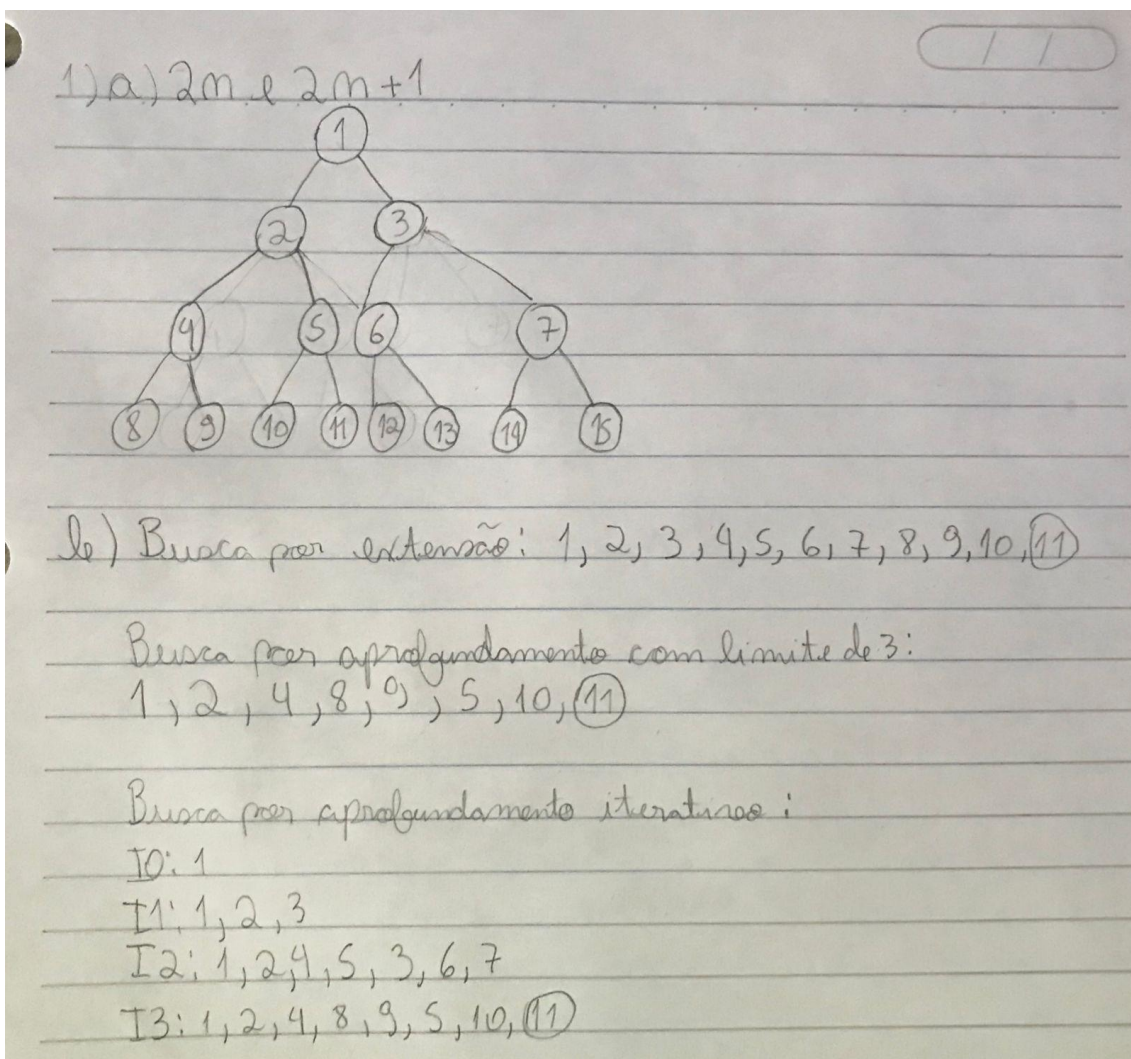 1) a) 2n e 2n+1
1
2 3
4 5 6 7
8 9 10 11 12 13 14 15
b) Busca por extensão: 1, 2, 3, 4, 5, 6, 7, 8, 9, 10, 11
Busca por aprofundamento com limite de 3:
1, 2, 4, 8, 9, 5, 10, 11
Busca por aprofundamento iterativo:
I0: 1
I1: 1, 2, 3
I2: 1, 2, 4, 5, 3, 6, 7
I3: 1, 2, 4, 8, 9, 5, 10, 11